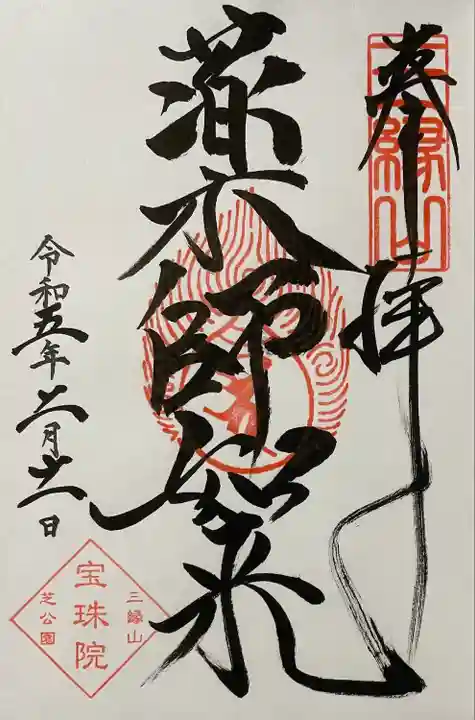 奉拝
三縁山
薬師如来
令和五年十二月十一日
三縁山
宝珠院
芝公園